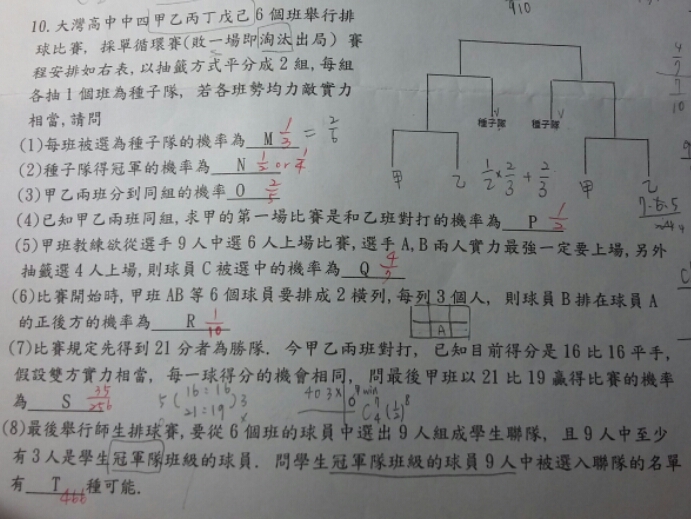 910
10. 大灣高中中四甲乙丙丁戊己6個班舉行排
球比賽, 採單循環賽(敗一場即淘汰出局) 賽
程安排如右表, 以抽籤方式平分成2組, 每組
各抽1個班為種子隊, 若各班勢均力敵實力
相當, 請問
(1)每班被選為種子隊的機率為 M 1/3 = 2/6
(2)種子隊得冠軍的機率為 N 1/2 or 1/4
(3)甲乙兩班分到同組的機率 O 2/5
種子隊 種子隊
甲 乙 1/2 × 2/3 + 2/3 甲 乙
(4)已知甲乙兩班同組, 求甲的第一場比賽是和乙班對打的機率為 P 1/2
(5)甲班教練欲從選手9人中選6人上場比賽, 選手A, B兩人實力最強一定要上場, 另外
抽籤選4人上場, 則球員C被選中的機率為 Q 4/7
(6)比賽開始時, 甲班AB等6個球員要排成2橫列, 每列3個人, 則球員B排在球員A
的正後方的機率為 R 1/10
A
(7)比賽規定先得到21分者為勝隊. 今甲乙兩班對打, 已知目前得分是16比16平手,
假設雙方實力相當, 每一球得分的機會相同, 問最後甲班以21比19贏得比賽的機率
為 S 35/256 5 ( 16:16 21:19 ) 3
(8)最後舉行師生排球賽, 要從6個班的球員中選出9人組成學生聯隊, 且9人中至少
有3人是學生冠軍隊班級的球員. 問學生冠軍隊班級的球員9人中被選入聯隊的名單
有 T 466 種可能.